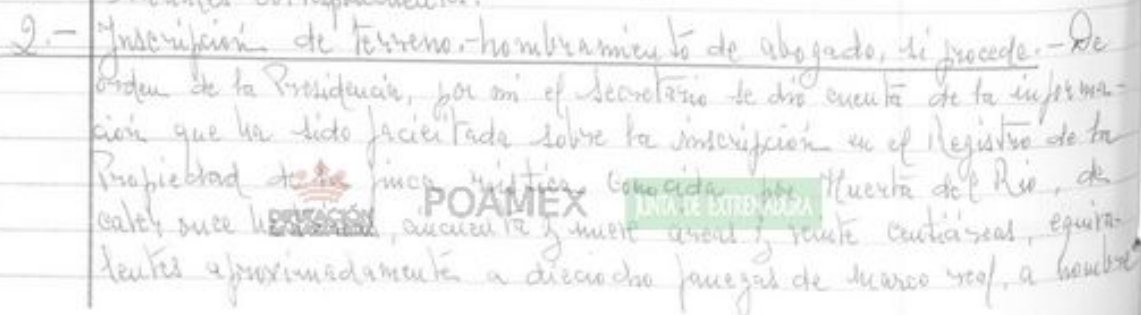 2.- Inscripción de terreno.-nombramiento de abogado, si procede.- De
orden de la Presidencia, por mi el Secretario se dió cuenta de la informa-
ción que ha sido facilitada sobre la inscripción en el Registro de la
Propiedad de la finca rústica conocida por Huerta del Rio, de
caber once, cincuenta y nueve áreas y veinte centiáreas, equiva-
lentes aproximadamente a dieciocho fanegas de marco real, a nombre
DIPUTACIÓN
POAMEX
JUNTA DE EXTREMADURA